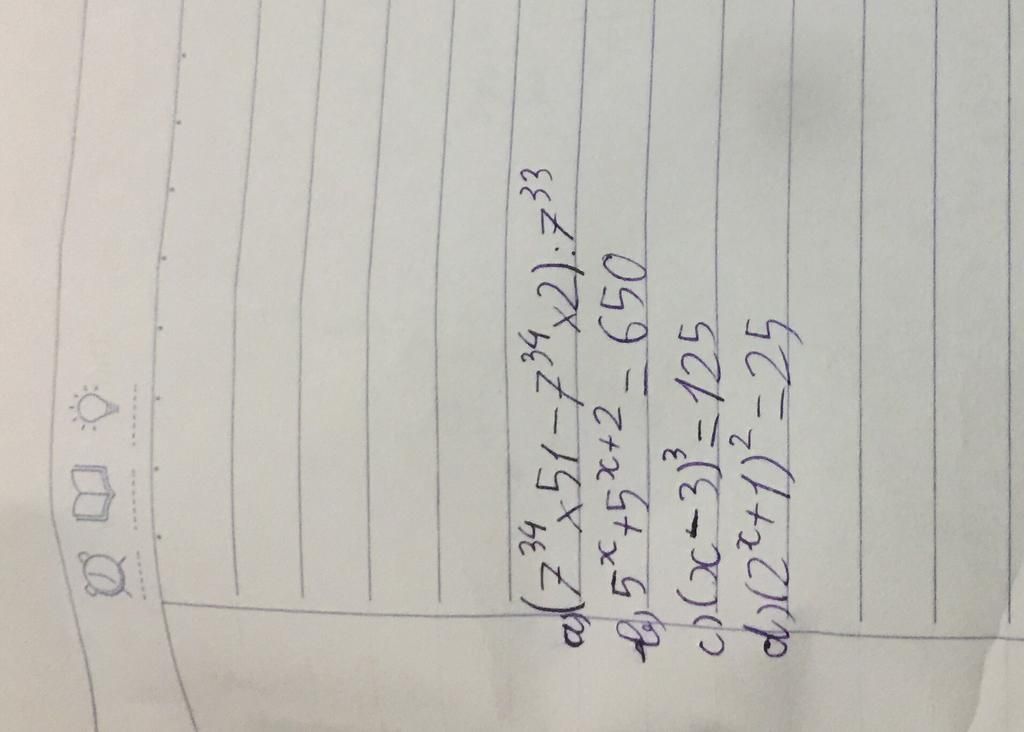 a) (7³⁴ x 51 - 7³⁴ x 2) : 7³³
b) 5ˣ + 5ˣ⁺² = 650
c) (x - 3)³ = 125
d) (2ˣ + 1)² = 25